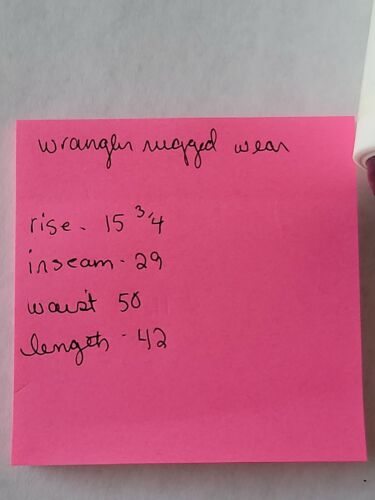 wrangler rugged wear
rise - 15 3/4
inseam - 29
waist 50
length - 42